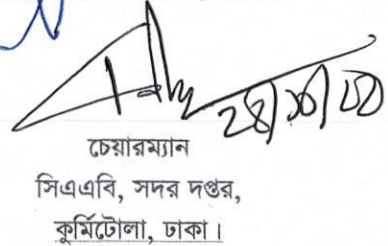 চেয়ারম্যান
সিএএবি, সদর দপ্তর,
কুর্মিটোলা, ঢাকা।